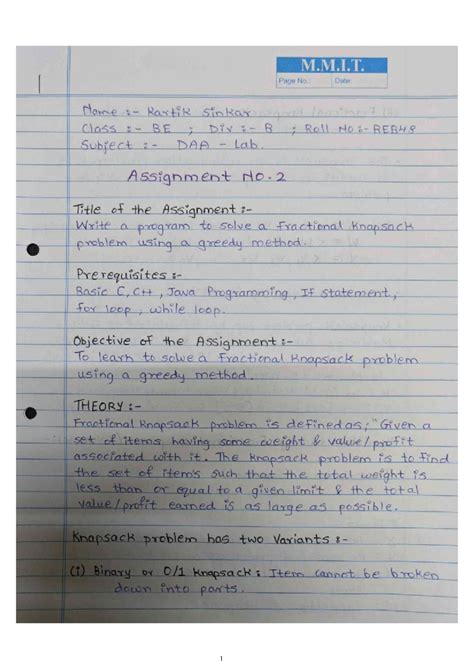 M.M.I.T.
Page No.: Date:
Name :- Kartik Sinkar
Class :- BE ; Div :- B ; Roll No :- BEB48
Subject :- DAA - Lab.
Assignment No. 2
Title of the Assignment :-
Write a program to solve a Fractional Knapsack
problem using a greedy method.
Prerequisites :-
Basic C, C++, Java Programming, If statement,
for loop, while loop.
Objective of the Assignment :-
To learn to solve a Fractional Knapsack problem
using a greedy method.
THEORY :-
Fractional Knapsack problem is defined as; "Given a
set of items having some weight & value/profit
associated with it. The Knapsack problem is to find
the set of items such that the total weight is
less than or equal to a given limit & the total
value/profit earned is as large as possible.
Knapsack problem has two Variants :-
(i) Binary or 0/1 Knapsack : Item cannot be broken
down into parts.
1